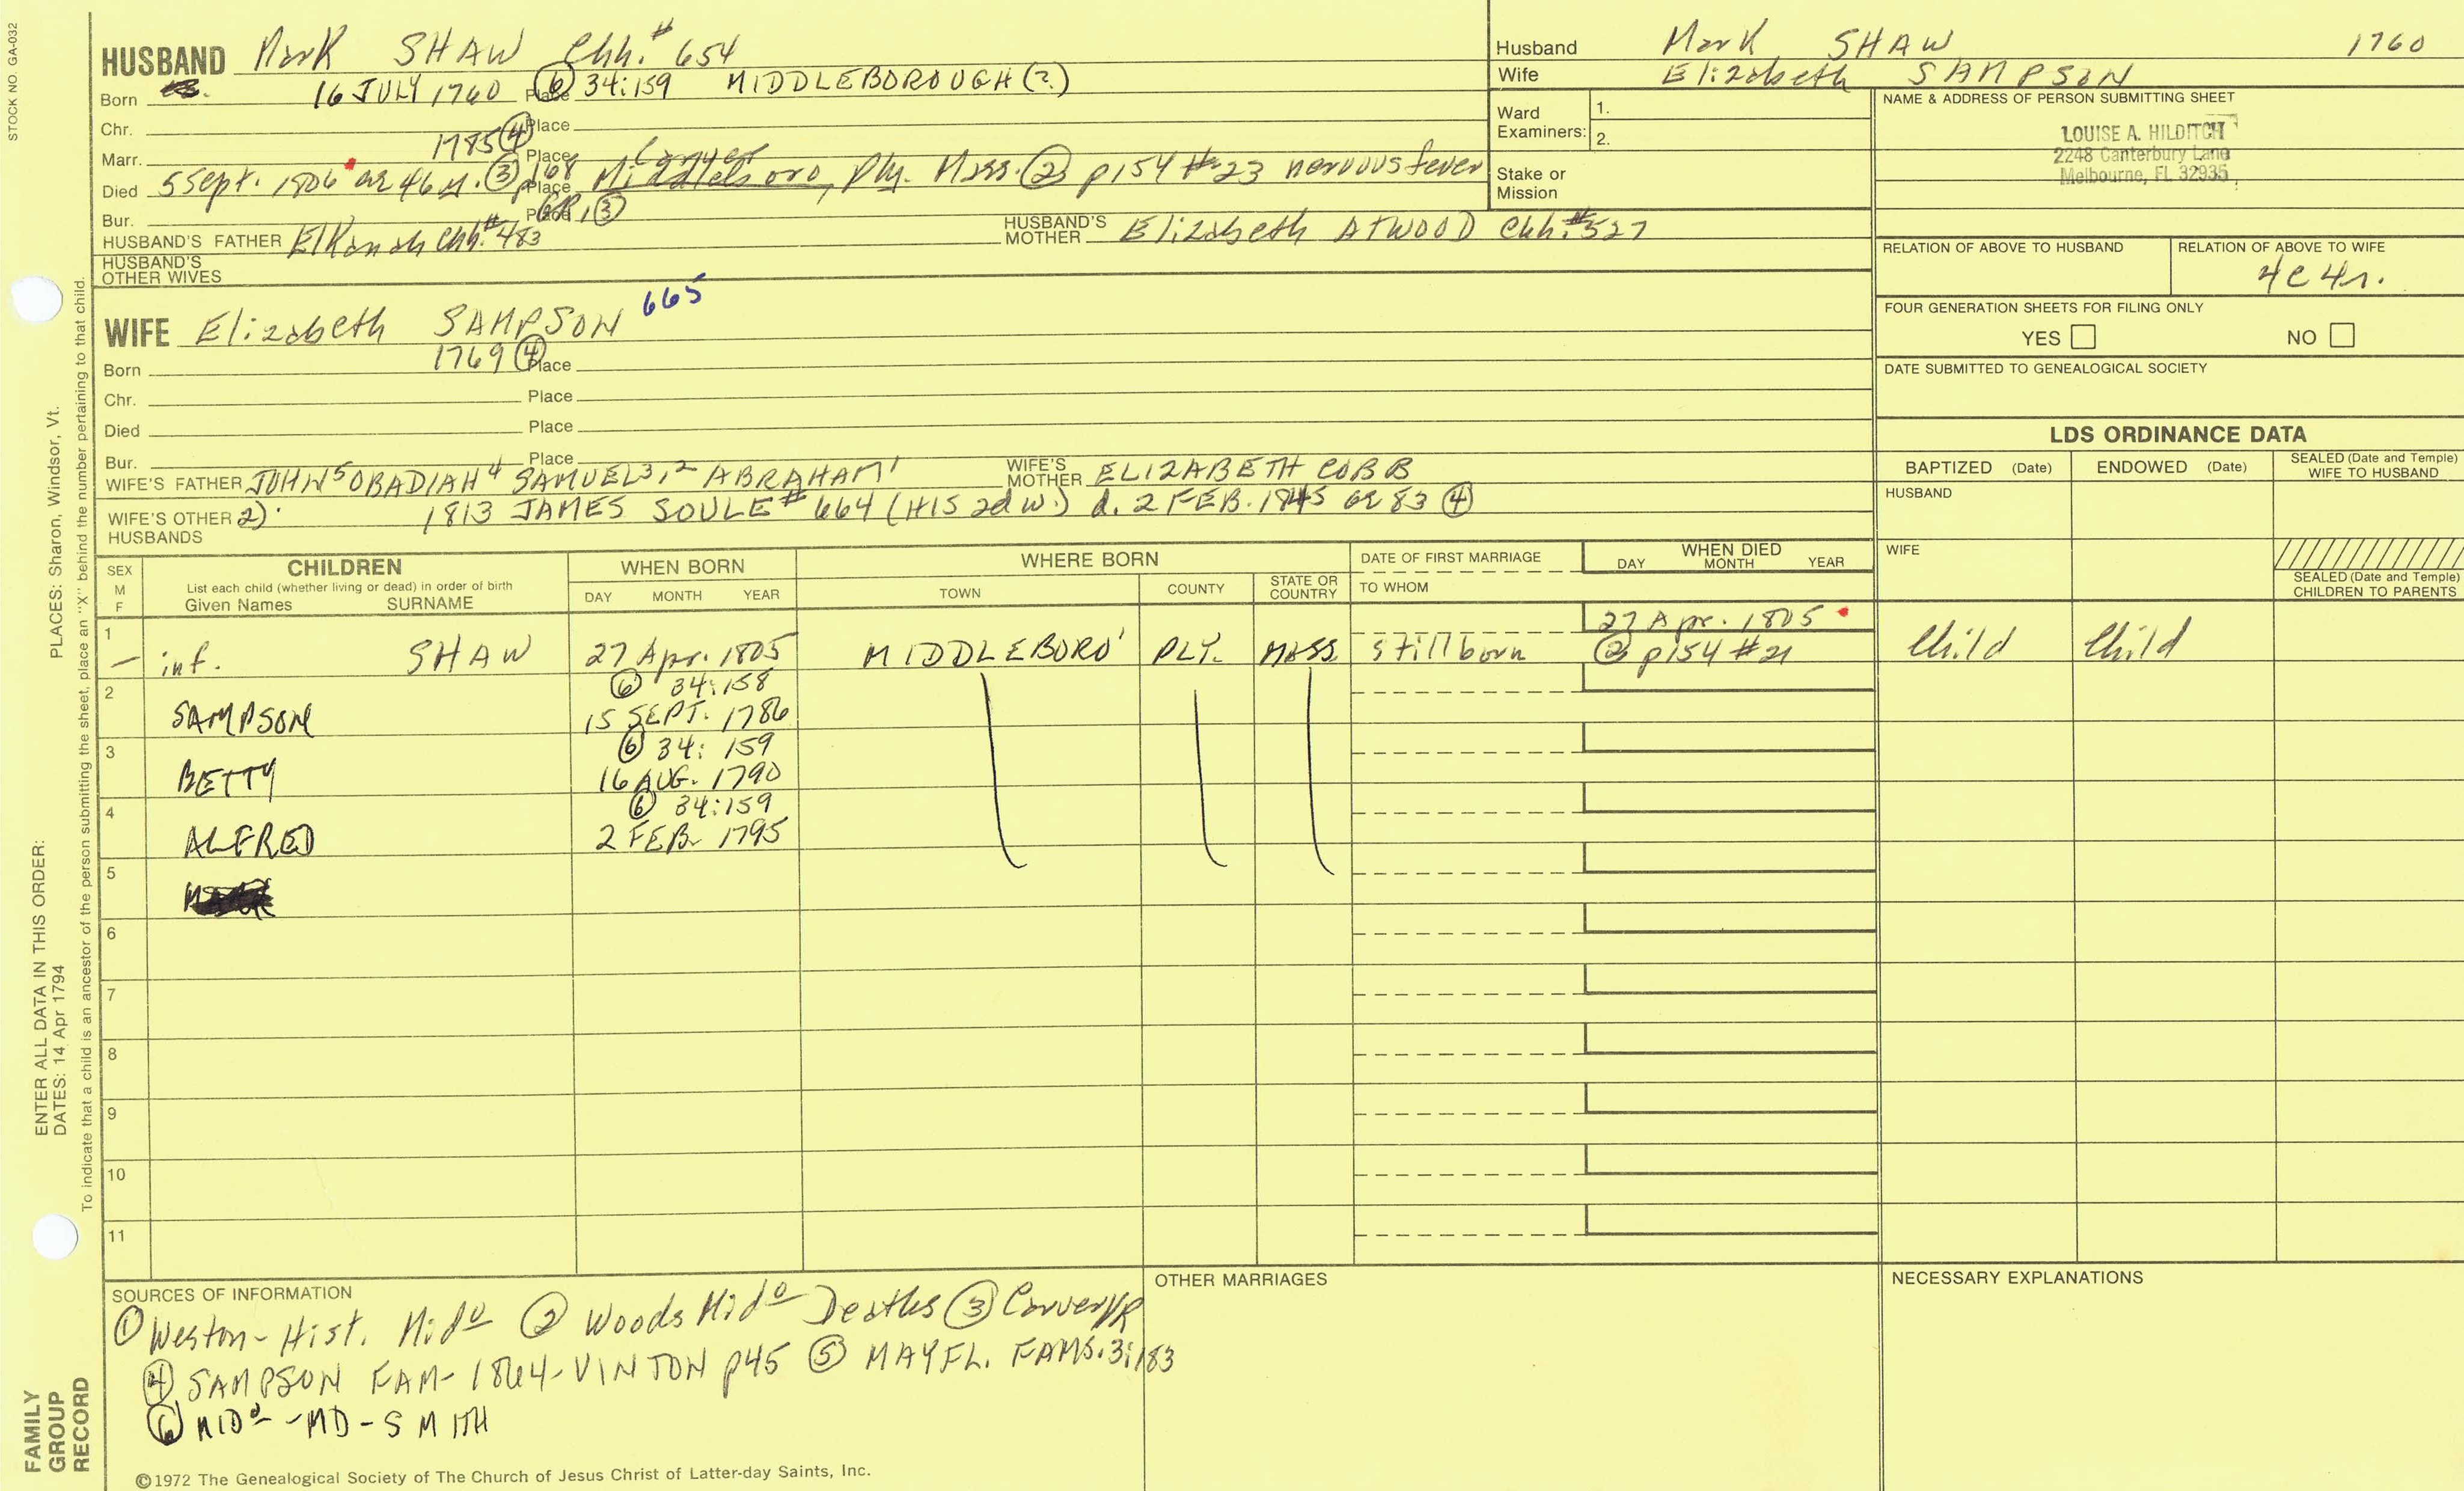 STOCK NO. GA-032
HUSBAND Mark SHAW Chh.# 654
Born 16 JULY 1760 Place ⑥ 34:159 MIDDLEBOROUGH (?)
Chr. Place
Marr. 1785 ④ Place
Carver
Died 5 Sept. 1806 ae 46 y. ③ p168 Place Middleboro, Ply. Mass. ② p154 #23 nervous fever
Bur. Place GR1 ③
HUSBAND'S FATHER Elkanah Chh.# 483 HUSBAND'S MOTHER Elizabeth ATWOOD Chh.#527
HUSBAND'S OTHER WIVES
665
WIFE Elizabeth SAMPSON
Born 1769 ④ Place
Chr. Place
Died Place
Bur. Place
WIFE'S FATHER JOHN5 OBADIAH4 SAMUEL3,2 ABRAHAM1 WIFE'S MOTHER ELIZABETH COBB
WIFE'S OTHER HUSBANDS 2) 1813 JAMES SOULE # 664 (HIS 2d w.) d. 2 FEB. 1845 ae 83 ④
Husband Mark SHAW 1760
Wife Elizabeth SAMPSON
Ward Examiners: 1.
2.
Stake or Mission
NAME & ADDRESS OF PERSON SUBMITTING SHEET
LOUISE A. HILDITCH
2248 Canterbury Lane
Melbourne, FL 32935
RELATION OF ABOVE TO HUSBAND RELATION OF ABOVE TO WIFE
4c4r.
FOUR GENERATION SHEETS FOR FILING ONLY
YES NO
DATE SUBMITTED TO GENEALOGICAL SOCIETY
LDS ORDINANCE DATA
BAPTIZED (Date) ENDOWED (Date) SEALED (Date and Temple) WIFE TO HUSBAND
HUSBAND
WIFE
SEALED (Date and Temple) CHILDREN TO PARENTS
SEX M F CHILDREN WHEN BORN WHERE BORN DATE OF FIRST MARRIAGE WHEN DIED
List each child (whether living or dead) in order of birth
Given Names SURNAME DAY MONTH YEAR TOWN COUNTY STATE OR COUNTRY TO WHOM DAY MONTH YEAR
1 inf. SHAW 27 Apr. 1805 MIDDLEBORO' PLY. MASS stillborn 27 Apr. 1805 ② p154 #21 Child Child
2 ⑥ 34:158
SAMPSON 15 SEPT. 1786
3 ⑥ 34: 159
BETTY 16 AUG. 1790
4 ⑥ 34:159
ALFRED 2 FEB. 1795
5
6
7
8
9
10
11
SOURCES OF INFORMATION
① Weston-Hist. Mido ② Woods Mido Deaths ③ Carver VR
④ SAMPSON FAM-1864-VINTON p45 ⑤ MAYFL. FAMS. 3:183
⑥ MIDo-MD-SMITH
OTHER MARRIAGES
NECESSARY EXPLANATIONS
©1972 The Genealogical Society of The Church of Jesus Christ of Latter-day Saints, Inc.
FAMILY GROUP RECORD
ENTER ALL DATA IN THIS ORDER:
DATES: 14 Apr 1794
PLACES: Sharon, Windsor, Vt.
To indicate that a child is an ancestor of the person submitting the sheet, place an "X" behind the number pertaining to that child.